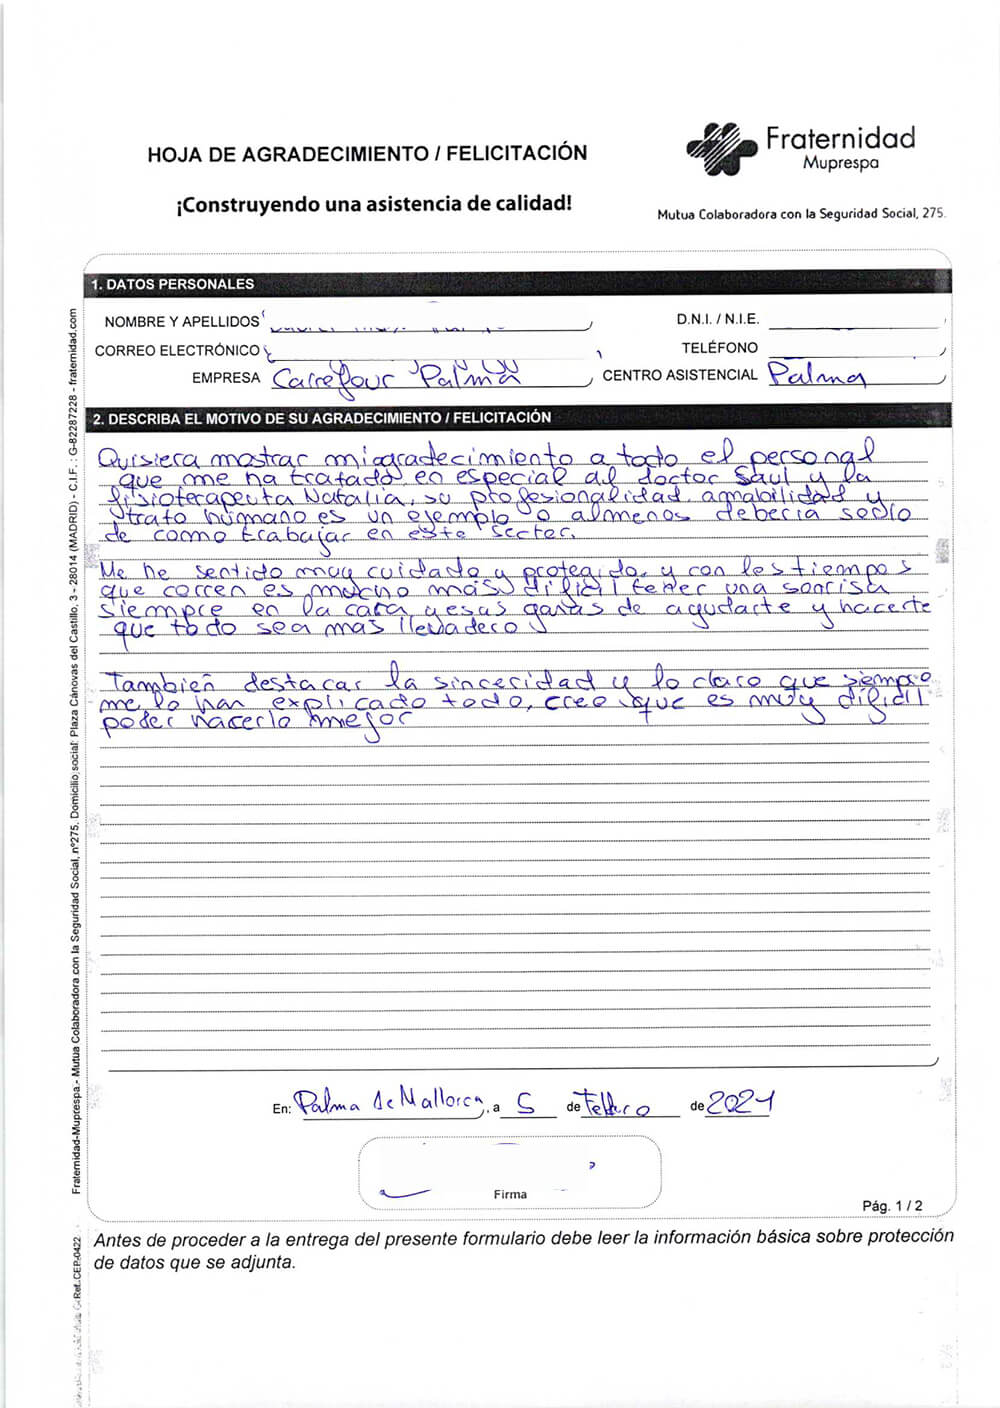 HOJA DE AGRADECIMIENTO / FELICITACIÓN
¡Construyendo una asistencia de calidad!
Fraternidad
Muprespa
Mutua Colaboradora con la Seguridad Social, 275.
1. DATOS PERSONALES
NOMBRE Y APELLIDOS
D.N.I. / N.I.E.
CORREO ELECTRÓNICO
TELÉFONO
EMPRESA Carrefour Palma
CENTRO ASISTENCIAL Palma
2. DESCRIBA EL MOTIVO DE SU AGRADECIMIENTO / FELICITACIÓN
Quisiera mostrar mi agradecimiento a todo el personal
que me ha tratado, en especial al doctor Saul y la
fisioterapeuta Natalia, su profesionalidad, amabilidad y
trato humano es un ejemplo o almenos deberia serlo
de como trabajar en este sector.
Me he sentido muy cuidado y protegido, y con los tiempos
que corren es mucho mas dificil tener una sonrisa
siempre en la cara y esas ganas de ayudarte y hacerte
que todo sea mas llevadero
Tambien destacar la sinceridad y lo claro que siempre
me lo han explicado todo, creo que es muy dificil
poder hacerlo mejor
En: Palma de Mallorca, a 5 de Febrero de 2021
Firma
Pág. 1 / 2
Antes de proceder a la entrega del presente formulario debe leer la información básica sobre protección
de datos que se adjunta.
Fraternidad-Muprespa.- Mutua Colaboradora con la Seguridad Social, nº275. Domicilio social: Plaza Cánovas del Castillo, 3 - 28014 (MADRID) - C.I.F. : G-82287228 - fraternidad.com
Ref. CEP-0422